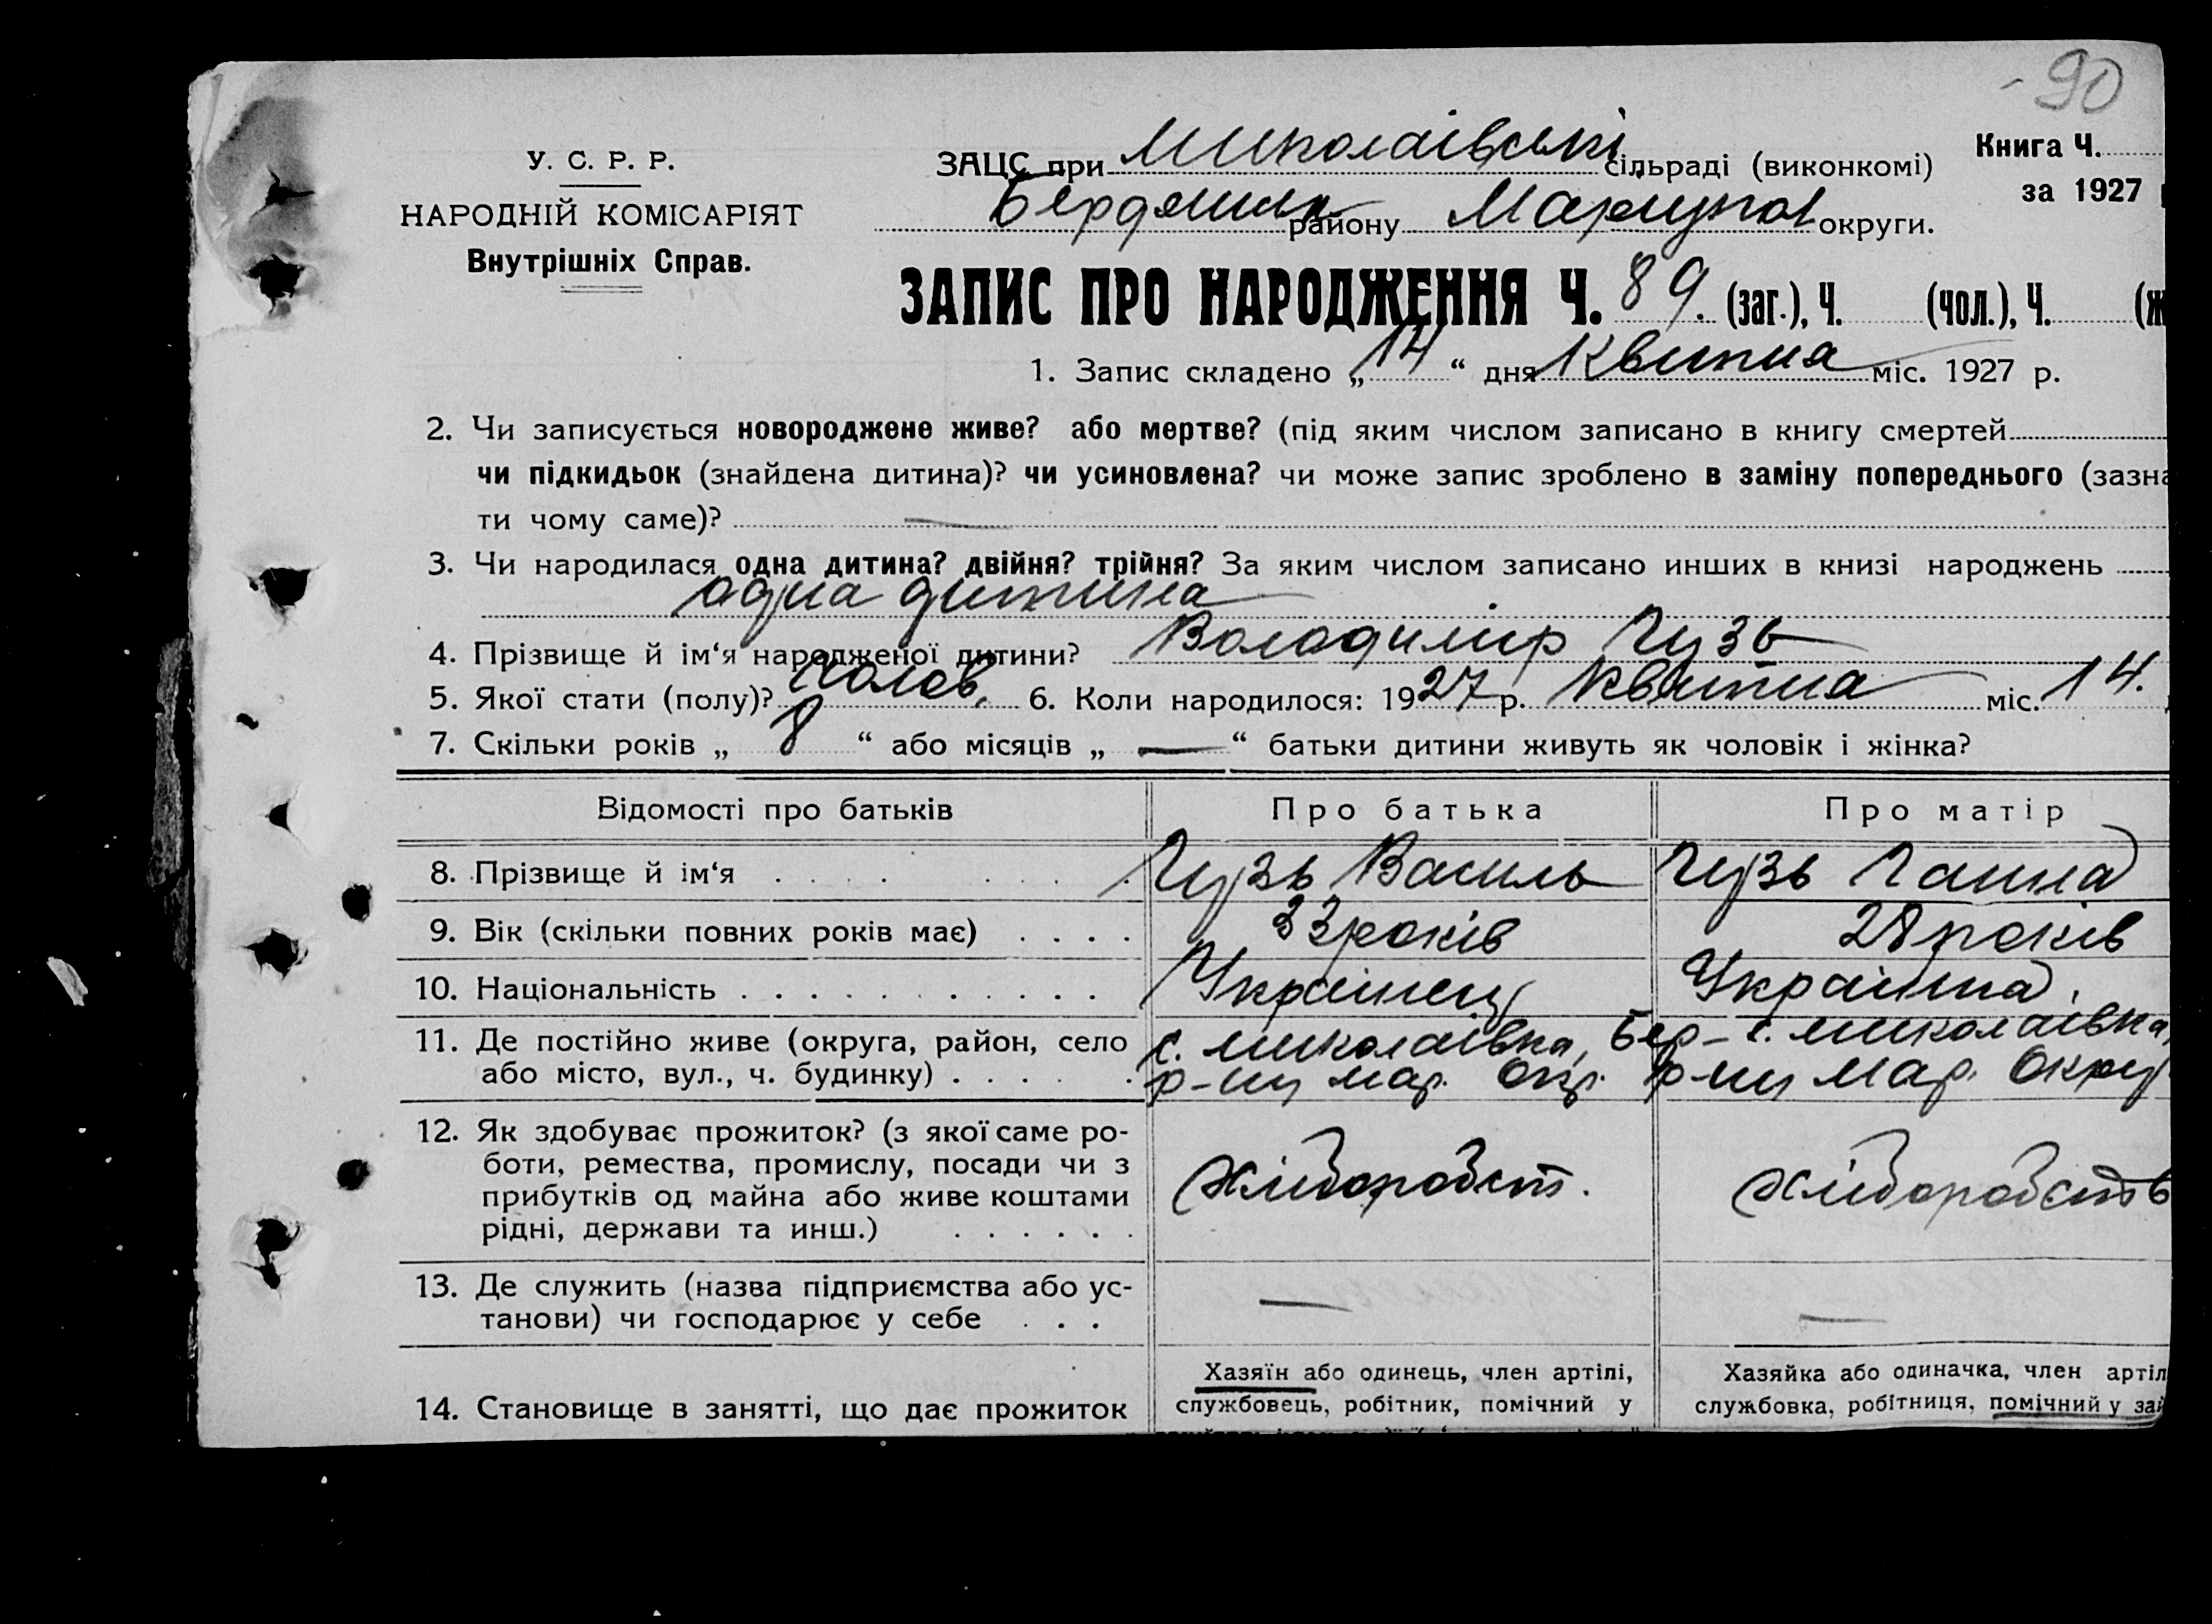 90
У. С. Р. Р.
НАРОДНІЙ КОМІСАРІЯТ
Внутрішніх Справ.
ЗАЦС при Миколаівські сільраді (виконкомі)
Книга Ч.
за 1927
Бердянськ району Маріупол округи.
ЗАПИС ПРО НАРОДЖЕННЯ Ч. 89. (заг.), Ч. (чол.), Ч. (ж
1. Запис складено „ 14 “ дня Квитна міс. 1927 р.
2. Чи записується новороджене живе? або мертве? (під яким числом записано в книгу смертей
чи підкидьок (знайдена дитина)? чи усиновлена? чи може запис зроблено в заміну попереднього (зазна
ти чому саме)? —
3. Чи народилася одна дитина? двійня? трійня? За яким числом записано инших в книзі народжень
одна дитина
4. Прізвище й ім‘я народженої дитини? Володимір Гузь
5. Якої стати (полу)? чолов. 6. Коли народилося: 1927 р. Квитна міс. 14.
7. Скільки років „ 8 “ або місяців „ — “ батьки дитини живуть як чоловік і жінка?
Відомості про батьків Про батька Про матір
8. Прізвище й ім‘я Гузь Василь Гузь Ганна
9. Вік (скільки повних років має) 33 років 28 років
10. Національність Украінец Украінка
11. Де постійно живе (округа, район, село с. Миколаівка, Бер- с. Миколаівка,
або місто, вул., ч. будинку) р-ну Мар. Окр. р-ну Мар. Окру
12. Як здобуває прожиток? (з якої саме ро-
боти, ремества, промислу, посади чи з Хліборобст. Хліборобств
прибутків од майна або живе коштами
рідні, держави та инш.)
13. Де служить (назва підприємства або ус- — —
танови) чи господарює у себе
Хазяїн або одинець, член артілі, Хазяйка або одиначка, член артіл
14. Становище в занятті, що дає прожиток службовець, робітник, помічний у службовка, робітниця, помічний у зай